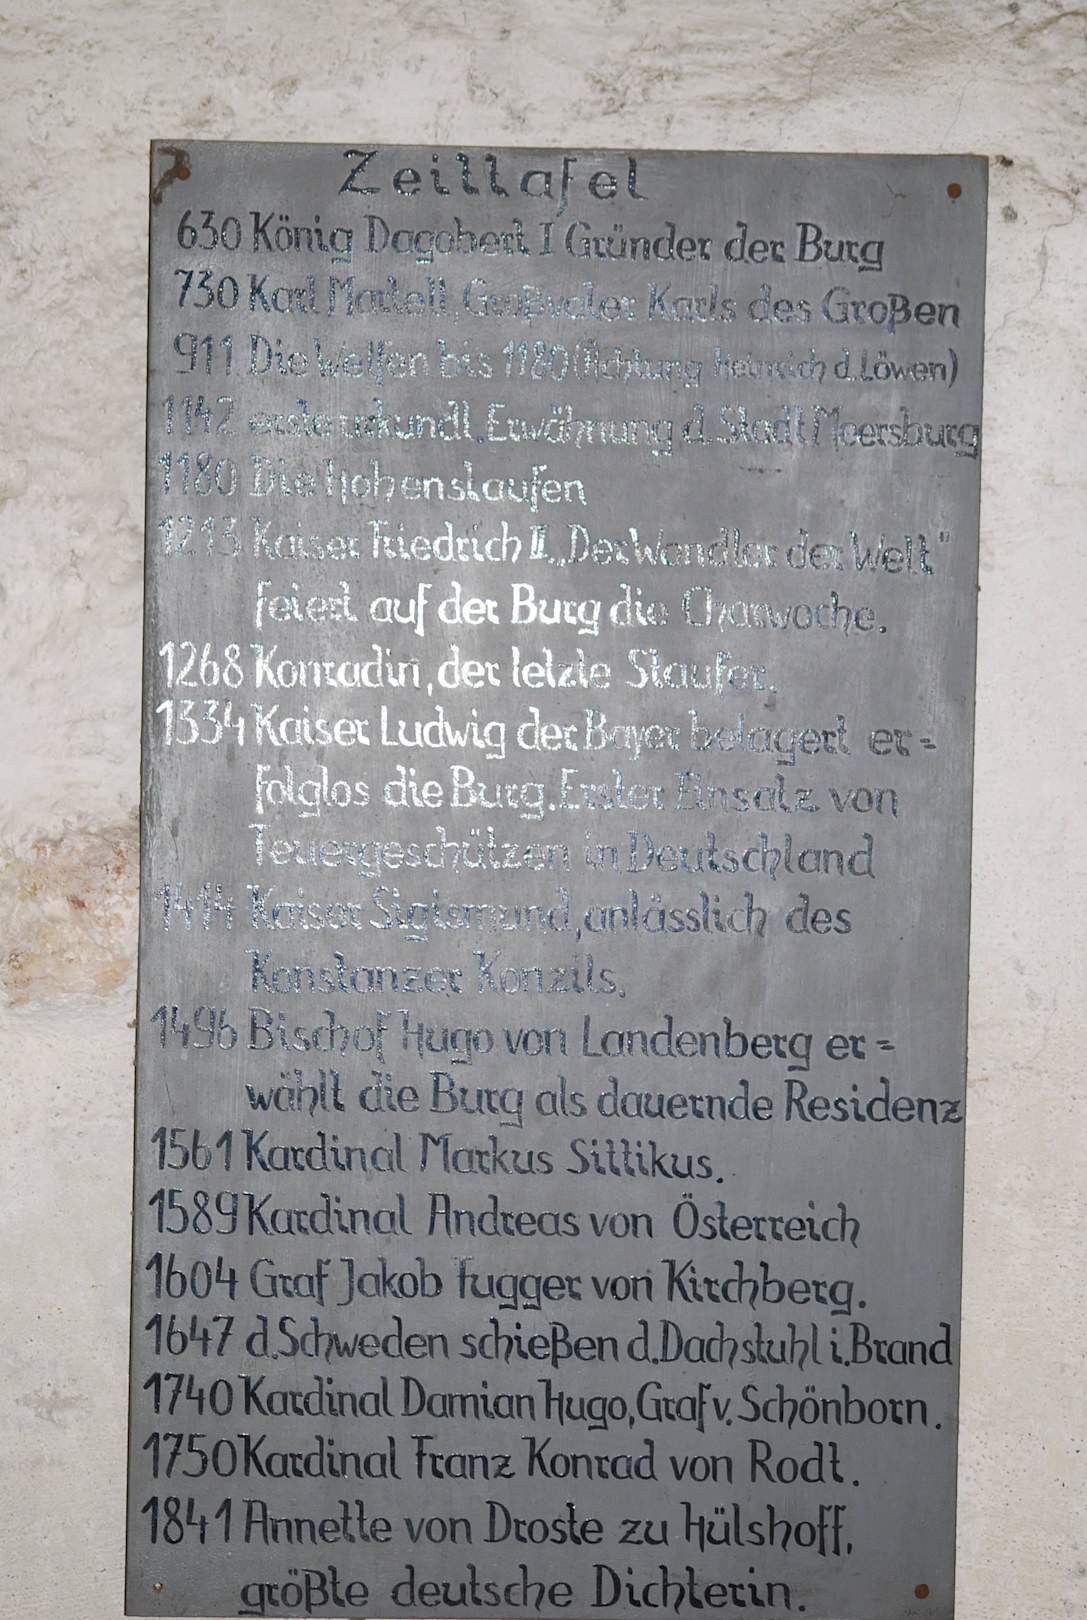 Zeittafel
630 König Dagobert I Gründer der Burg
730 Karl Martell, Großvater Karls des Großen
911 Die Welfen bis 1180 (Ächtung Heinrich d. Löwen)
1142 erste urkundl. Erwähnung d. Stadt Meersburg
1180 Die Hohenstaufen
1213 Kaiser Friedrich II. „Der Wandler der Welt"
feiert auf der Burg die Charwoche.
1268 Konradin, der letzte Staufer.
1334 Kaiser Ludwig der Bayer belagert er=
folglos die Burg. Erster Einsatz von
Feuergeschützen in Deutschland
1414 Kaiser Sigismund, anlässlich des
Konstanzer Konzils.
1496 Bischof Hugo von Landenberg er=
wählt die Burg als dauernde Residenz
1561 Kardinal Markus Sittikus.
1589 Kardinal Andreas von Österreich
1604 Graf Jakob Fugger von Kirchberg.
1647 d. Schweden schießen d. Dachstuhl i. Brand
1740 Kardinal Damian Hugo, Graf v. Schönborn.
1750 Kardinal Franz Konrad von Rodt.
1841 Annette von Droste zu Hülshoff,
größte deutsche Dichterin.